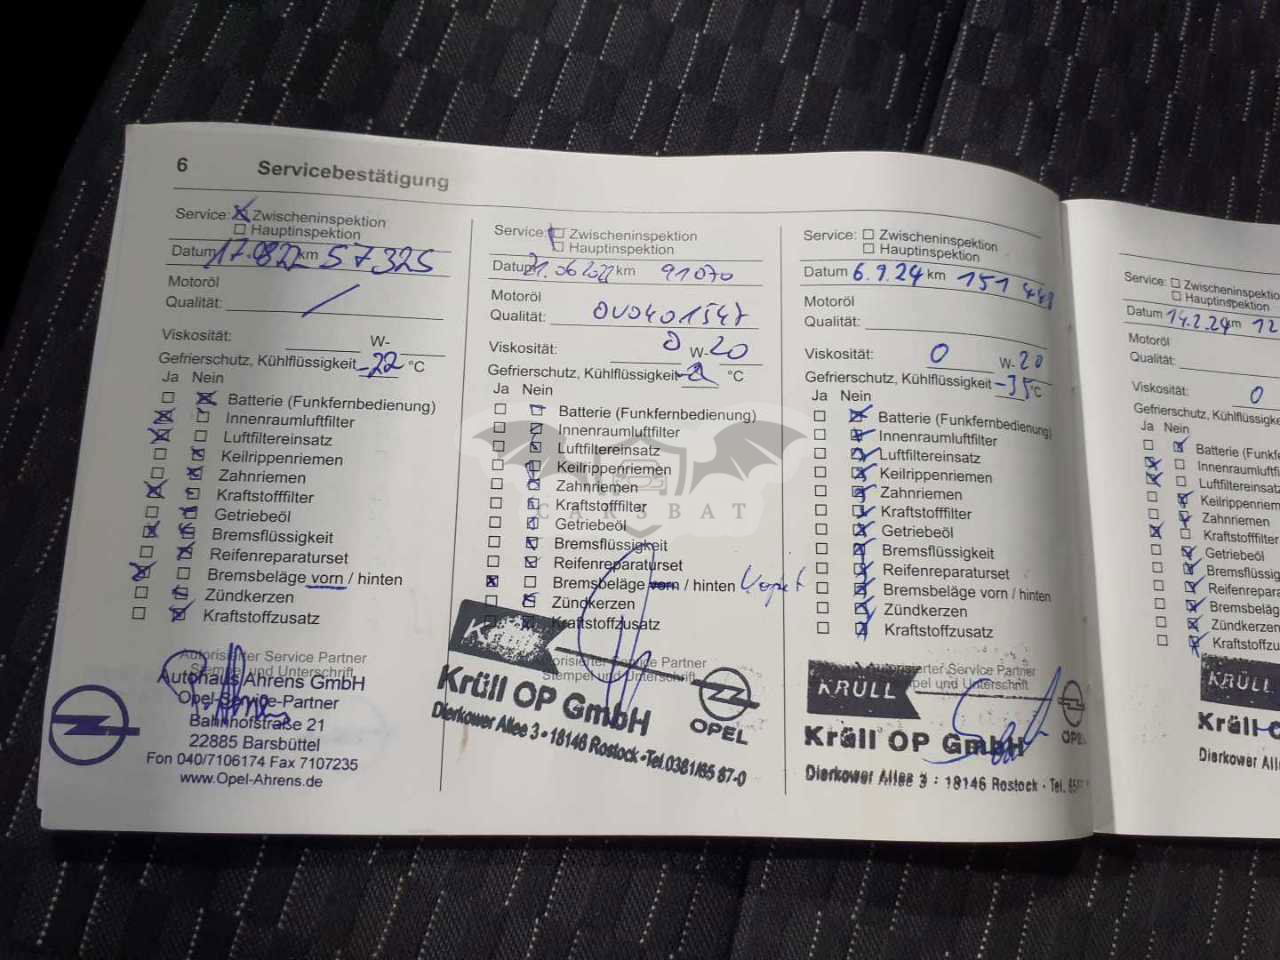 6 Servicebestätigung
Service: Zwischeninspektion
Hauptinspektion
Datum 17.08.22 km 57325
Motoröl
Qualität:
Viskosität: W-
Gefrierschutz, Kühlflüssigkeit -22 °C
Ja Nein
Batterie (Funkfernbedienung)
Innenraumluftfilter
Luftfiltereinsatz
Keilrippenriemen
Zahnriemen
Kraftstofffilter
Getriebeöl
Bremsflüssigkeit
Reifenreparaturset
Bremsbeläge vorn / hinten
Zündkerzen
Kraftstoffzusatz
Autorisierter Service Partner
Stempel und Unterschrift
Autohaus Ahrens GmbH
Opel-Service-Partner
Bahnhofstraße 21
22885 Barsbüttel
Fon 040/7106174 Fax 7107235
www.Opel-Ahrens.de
Service: Zwischeninspektion
Hauptinspektion
Datum km 91070
Motoröl
Qualität: OV0401547
Viskosität: 0 W-20
Gefrierschutz, Kühlflüssigkeit °C
Ja Nein
Batterie (Funkfernbedienung)
Innenraumluftfilter
Luftfiltereinsatz
Keilrippenriemen
Zahnriemen
Kraftstofffilter
Getriebeöl
Bremsflüssigkeit
Reifenreparaturset
Bremsbeläge vorn / hinten
Zündkerzen
Kraftstoffzusatz
Autorisierter Service Partner
Stempel und Unterschrift
Krüll OP GmbH
Dierkower Allee 3 • 18146 Rostock • Tel. 0381/65 87-0
OPEL
CARSBAT
Service: Zwischeninspektion
Hauptinspektion
Datum 6.9.24 km 151 448
Motoröl
Qualität:
Viskosität: 0 W-20
Gefrierschutz, Kühlflüssigkeit -35 °C
Ja Nein
Batterie (Funkfernbedienung)
Innenraumluftfilter
Luftfiltereinsatz
Keilrippenriemen
Zahnriemen
Kraftstofffilter
Getriebeöl
Bremsflüssigkeit
Reifenreparaturset
Bremsbeläge vorn / hinten
Zündkerzen
Kraftstoffzusatz
Autorisierter Service Partner
Stempel und Unterschrift
KRÜLL
Krüll OP GmbH
OPEL
Dierkower Allee 3 • 18146 Rostock • Tel.
Service: Zwischeninspektion
Hauptinspektion
Datum 14.2.24 km 12
Motoröl
Qualität:
Viskosität: 0
Gefrierschutz, Kühlflüssigke
Ja Nein
Batterie (Funkfe
Innenraumluftfi
Luftfiltereinsatz
Keilrippenriem
Zahnriemen
Kraftstofffilter
Getriebeöl
Bremsflüssig
Reifenrepara
Bremsbeläge
Zündkerzen
Kraftstoffzu
KRÜLL
Krüll O
Dierkower All